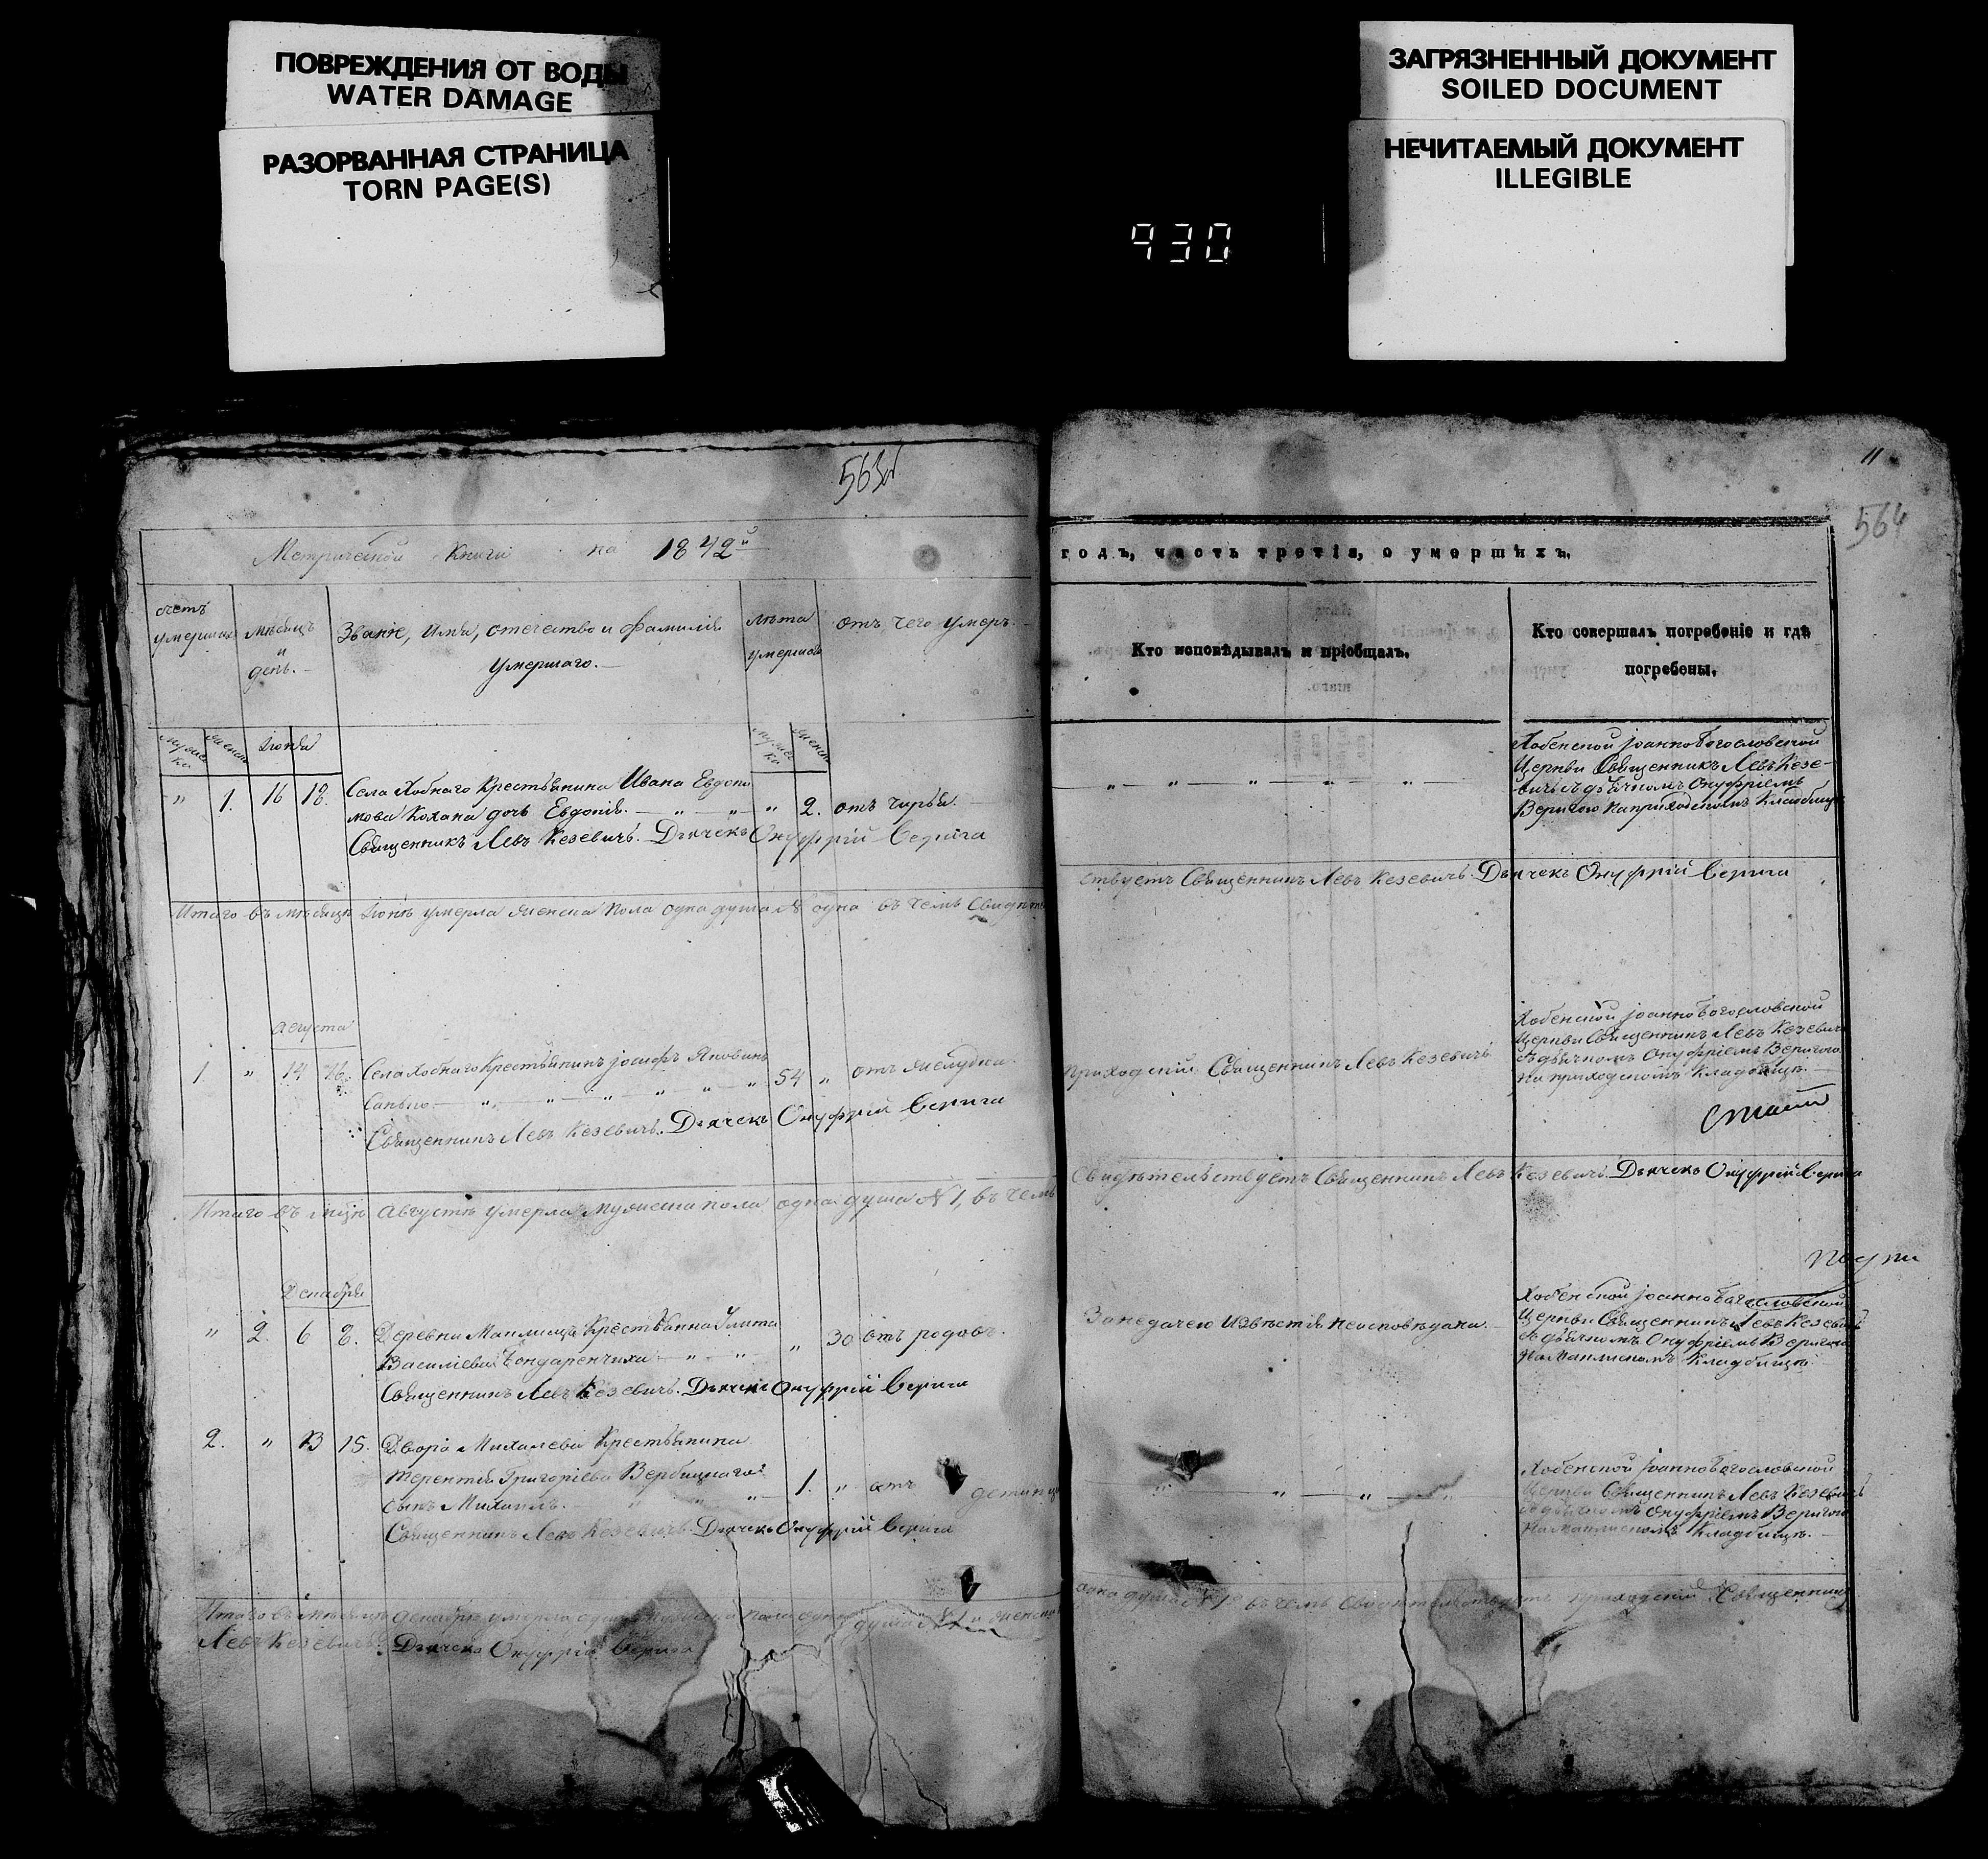 ПОВРЕЖДЕНИЯ ОТ ВОДЫ
WATER DAMAGE
РАЗОРВАННАЯ СТРАНИЦА
TORN PAGE(S)
930
ЗАГРЯЗНЕННЫЙ ДОКУМЕНТ
SOILED DOCUMENT
НЕЧИТАЕМЫЙ ДОКУМЕНТ
ILLEGIBLE
563
Метрической Книги на 1842й
счетъ умершихъ
мѣсяцъ и день.
Званіе, имя, отечество и фамилія умершаго.
лѣта умершаго
отъ чего умеръ.
Іюня
" 1. 16 18. Села Хобнаго Крестьянина Ивана Евдоки
мова Кохана дочь Евдокія. — " — " " 2. отъ чирья.
Священникъ Левъ Кезевичъ. Дьячекъ Онуфрій Верига
Итого въ мѣсяцѣ Іюнѣ умерла женска пола одна душа № одна въ чемъ Свидѣте
Августа
1. " 14 16. Села Хобнаго Крестьянинъ Іосифъ Яковинъ
" " " " " 54 " отъ желудка
Священникъ Левъ Кезевичъ. Дьячекъ Онуфрій Верига
Итого въ мцѣ Августѣ умерла мужеска пола одна душа № 1, въ чемъ
Декабря
" 2. 6 8. Деревни Крестьянка Улита
Василіева Бондаренчиха — " — " " 30 отъ родовъ.
Священникъ Левъ Кезевичъ. Дьячекъ Онуфрій Верига
2. " 13 15. Двора Михалева Крестьянина
Терентія Григоріева Вербицкаго
сынъ Михаилъ. — " " " 1. " отъ
Священникъ Левъ Кезевичъ. Дьячекъ Онуфрій Верига
Итого въ мѣсяцѣ Декабрѣ умерла пола душа № 1 и женска
Левъ Кезевичъ. Дьячекъ Онуфрій Верига
11
564
годъ, часть третія, о умершихъ.
Кто исповѣдывалъ и пріобщалъ.
Кто совершалъ погребеніе и гдѣ
погребены.
Хобенской Іоанно Богословской
Церкви Священникъ Левъ Кезе-
вичъ съ дьячкомъ Онуфріемъ
Веригою на приходскомъ Кладбищѣ
ствуетъ Священникъ Левъ Кезевичъ. Дьячекъ Онуфрій Верига
Приходскій Священникъ Левъ Кезевичъ
Хобенской Іоанно Богословской
Церкви Священникъ Левъ Кезевичъ
съ дьячкомъ Онуфріемъ Веригою
на приходскомъ Кладбищѣ.
Свидѣтельствуетъ Священникъ Левъ Кезевичъ. Дьячекъ Онуфрій Верига
За недачею Извѣстія неисповѣдана.
Хобенской Іоанно Богословской
Церкви Священникъ Левъ Кезевичъ
съ дьячкомъ Онуфріемъ Веригою
Кладбищѣ
Хобенской Іоанно Богословской
Церкви Священникъ Левъ Кезевичъ
съ дьячкомъ Онуфріемъ Веригою
Кладбищѣ.
одна душа въ чемъ Свидѣтельствуетъ приходскій Священникъ